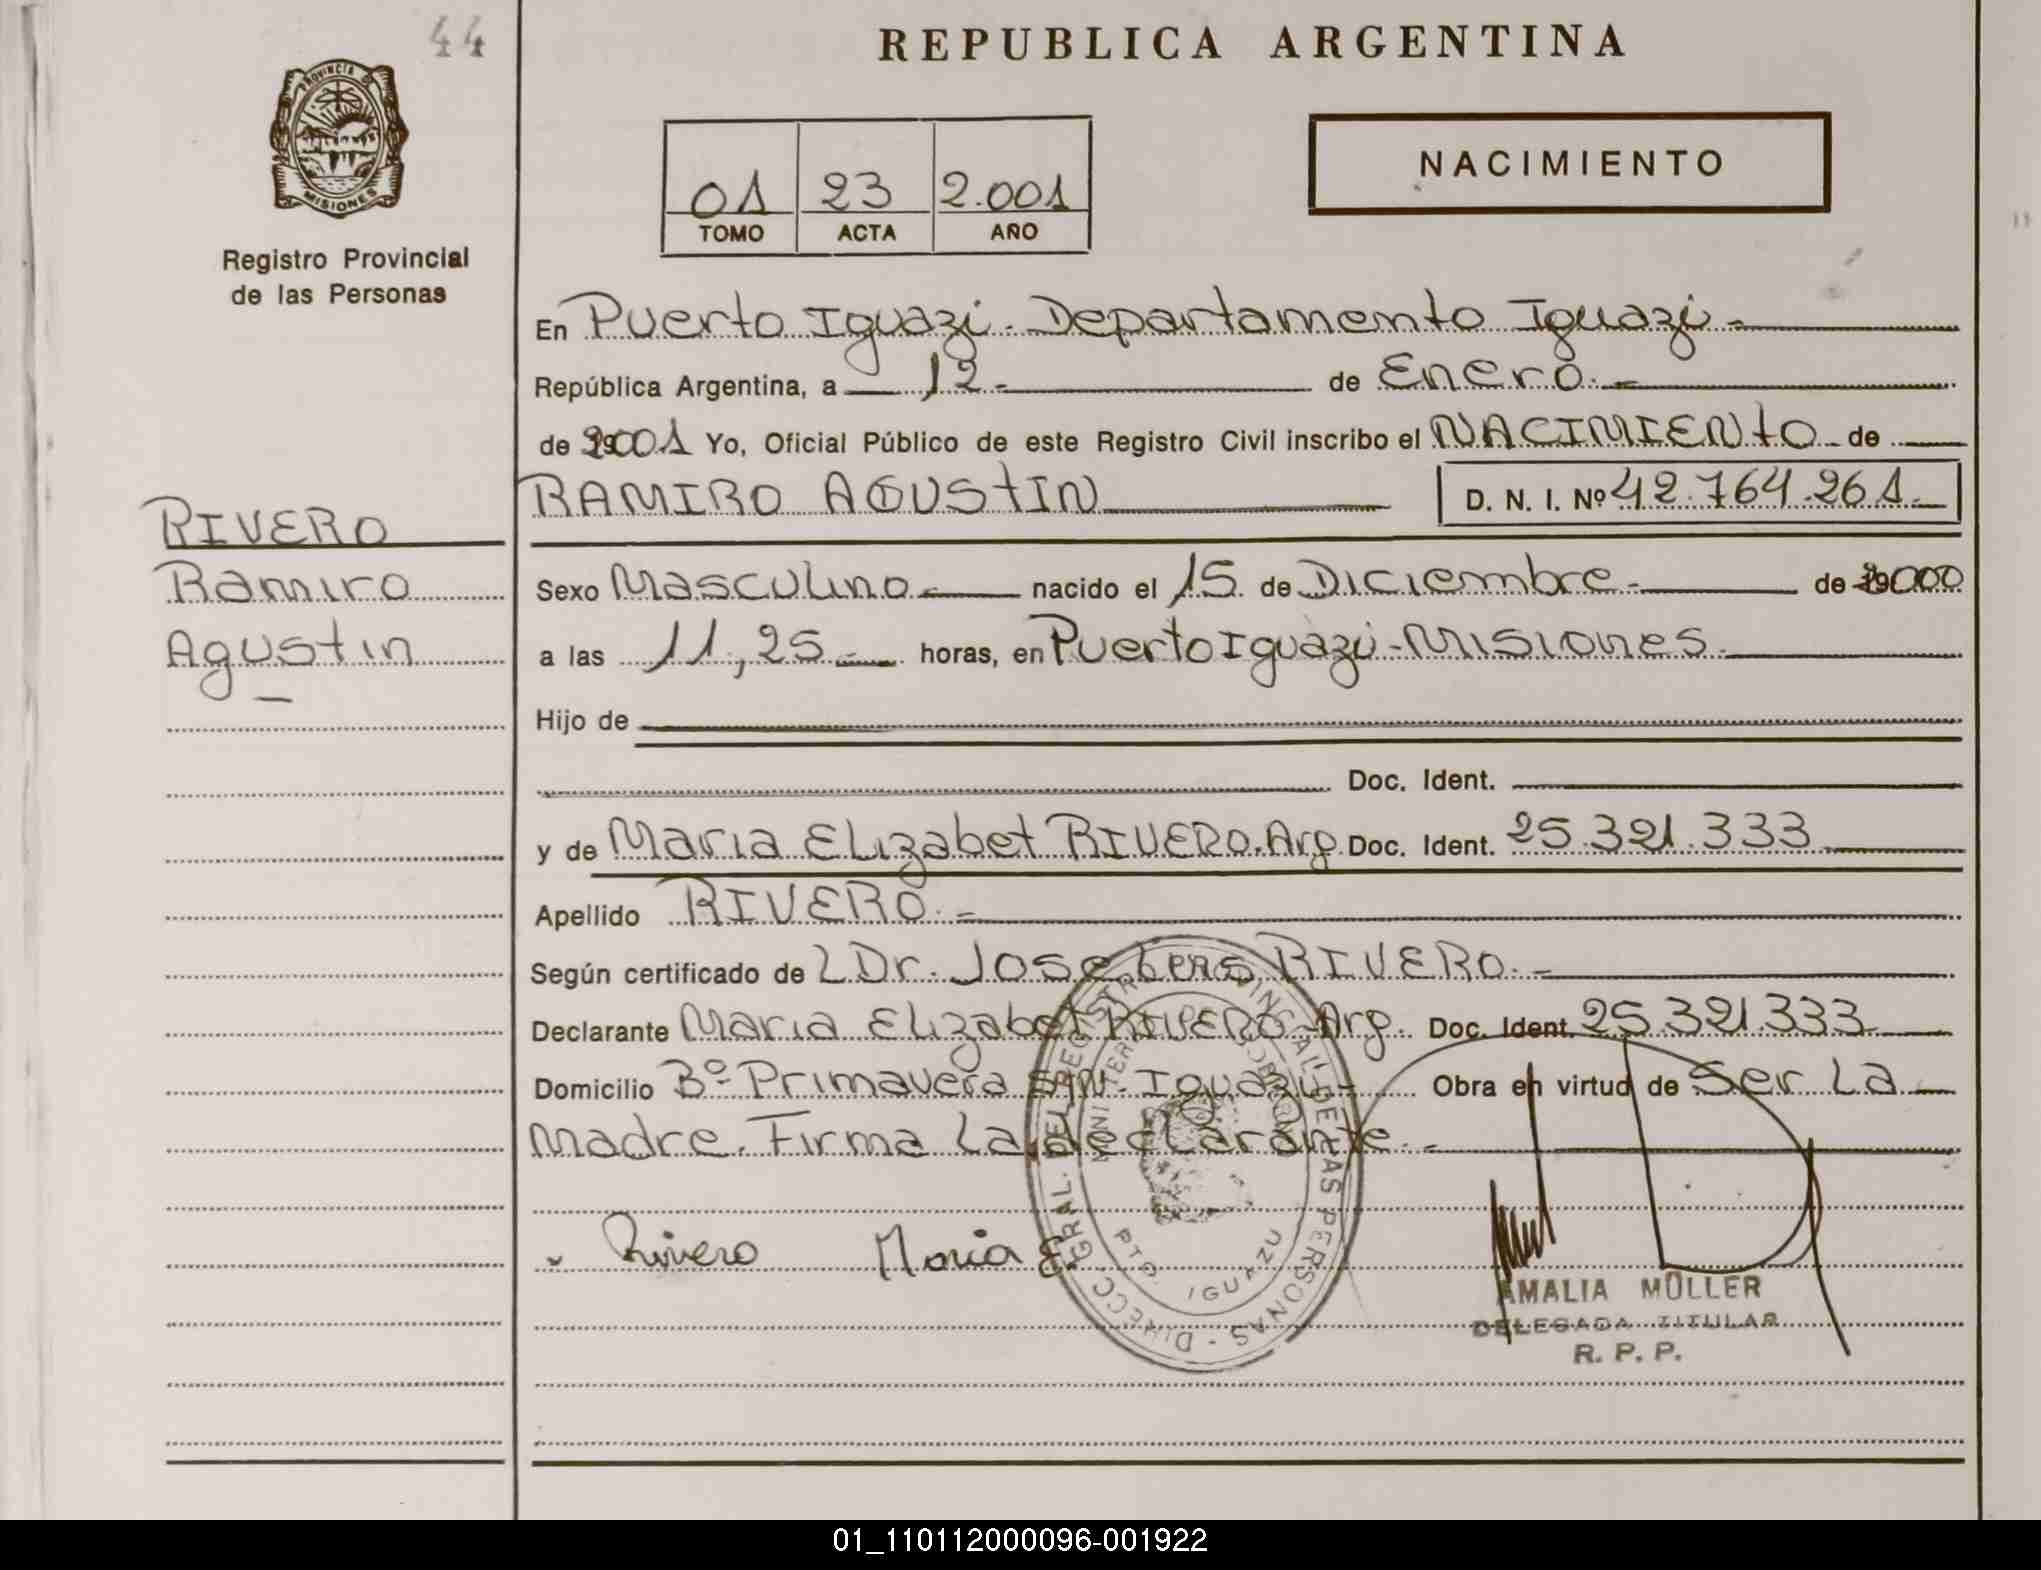 44
REPUBLICA ARGENTINA
PROVINCIA DE
MISIONES
Registro Provincial
de las Personas
01 23 2.001
TOMO ACTA AÑO
NACIMIENTO
En Puerto Iguazú. Departamento Iguazú-
República Argentina, a 12- de Enero.-
de 2001 Yo, Oficial Público de este Registro Civil inscribo el NACIMIENTO de
RAMIRO AGUSTIN D. N. I. Nº 42.764.261.
RIVERO
Ramiro
Agustin
Sexo Masculino.- nacido el 15 de Diciembre.- de 2000
a las 11,25.- horas, en Puerto Iguazú-Misiones.-
Hijo de
Doc. Ident.
y de Maria Elizabet RIVERO. Arg. Doc. Ident. 25.321.333
Apellido RIVERO.-
Según certificado de L Dr. Jose Luis RIVERO.-
Declarante Maria Elizabet RIVERO-Arg. Doc. Ident. 25.321.333
Domicilio Bº Primavera S/N. Iguazú- Obra en virtud de Ser La
Madre. Firma La declarante.-
Rivero Maria E.
DIRECC. GRAL. DEL REGISTRO PROVINCIAL DE LAS PERSONAS
PTO. IGUAZU
AMALIA MÜLLER
DELEGADA TITULAR
R. P. P.
01_110112000096-001922